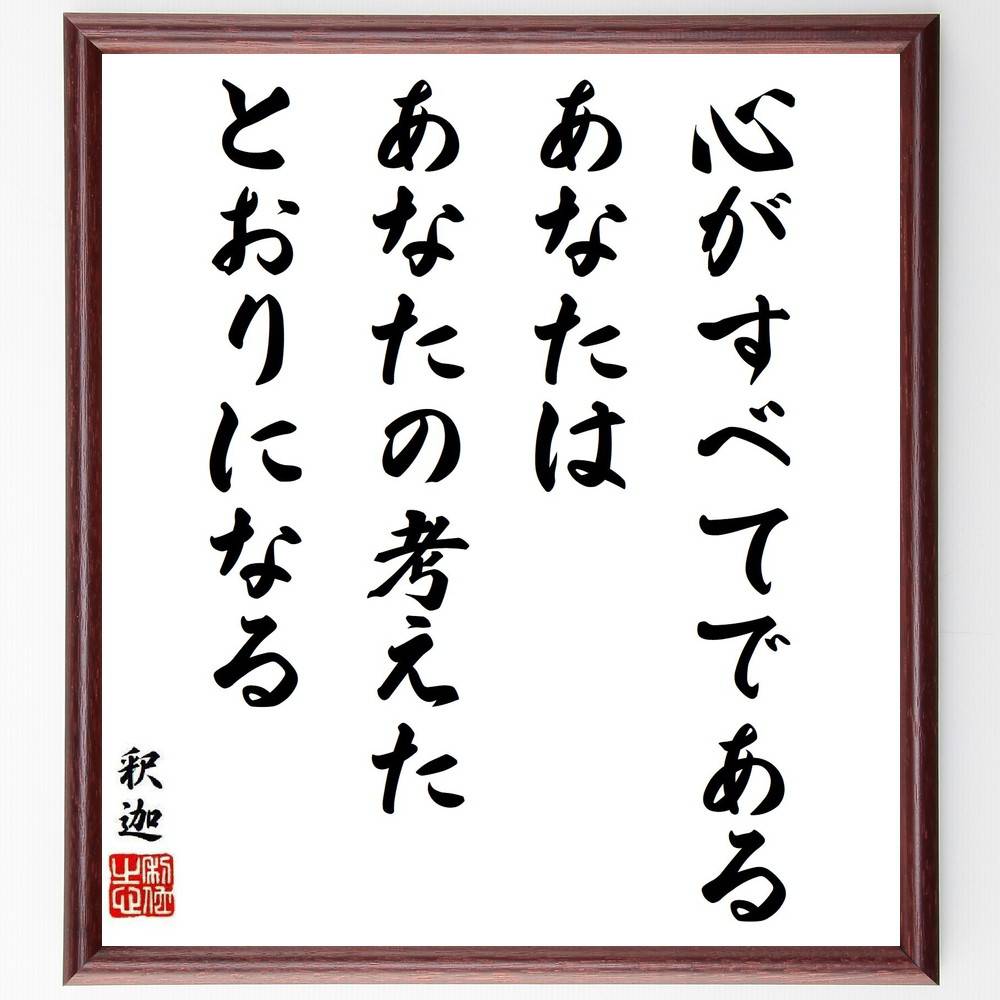 心がすべてである
あなたは
あなたの考えた
とおりになる
釈迦